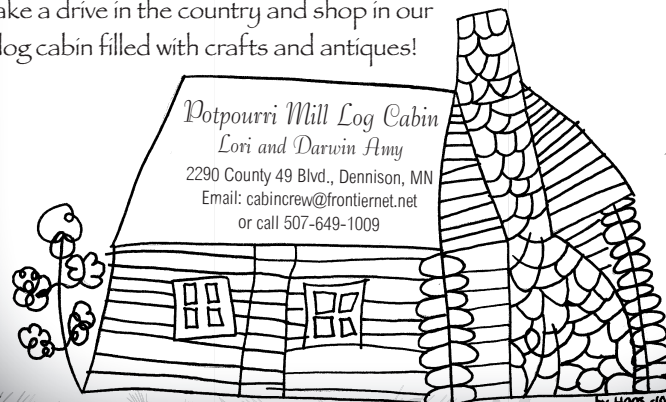 ake a drive in the country and shop in our
log cabin filled with crafts and antiques!
Potpourri Mill Log Cabin
Lori and Darwin Amy
2290 County 49 Blvd., Dennison, MN
Email: cabincrew@frontiernet.net
or call 507-649-1009